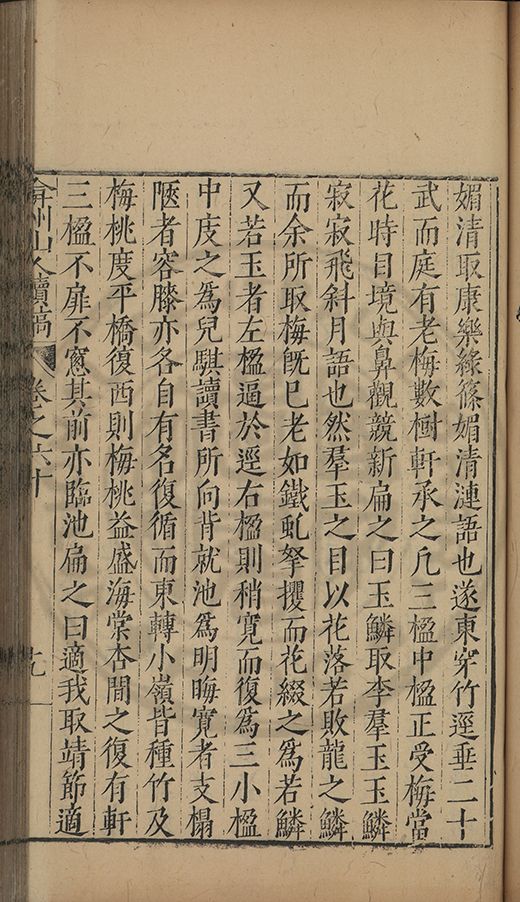 媚清取康樂綠篠媚清漣語也遂東穿竹逕垂二十
武而庭有老梅數樹軒承之凡三楹中楹正受梅當
花時目境與鼻觀競新扁之曰玉鱗取李羣玉玉鱗
寂寂飛斜月語也然羣玉之目以花落若敗龍之鱗
而余所取梅旣巳老如鐵虬拏攫而花綴之爲若鱗
又若玉者左楹逼於逕右楹則稍寬而復爲三小楹
中庋之爲兒騏讀書所向背就池爲明晦寬者支榻
陿者容膝亦各自有名復循而東轉小嶺皆種竹及
梅桃度平橋復西則梅桃益盛海棠杏間之復有軒
三楹不扉不窻其前亦臨池扁之曰適我取靖節適
弇州山人續稿 卷之六十 十九